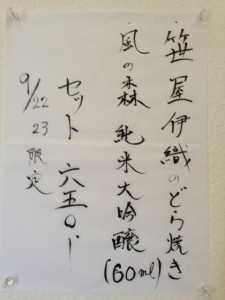 笹屋伊織のどら焼き
風の森 純米大吟醸
(60ml)
セット 六五〇ー
9/22 23 限定